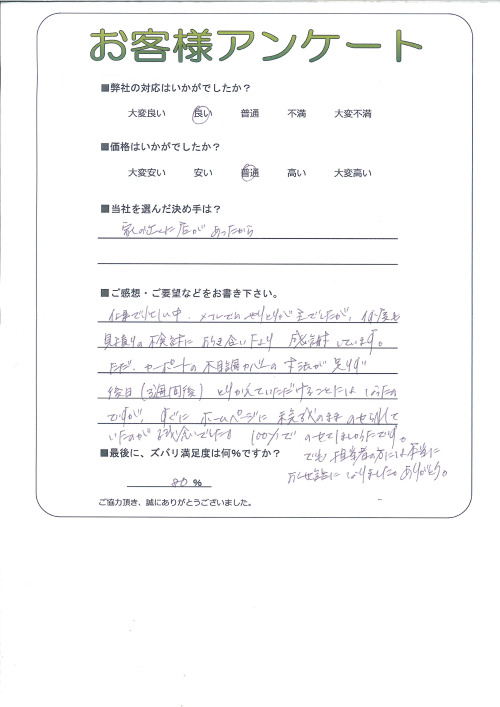 お客様アンケート
■弊社の対応はいかがでしたか？
大変良い 良い 普通 不満 大変不満
■価格はいかがでしたか？
大変安い 安い 普通 高い 大変高い
■当社を選んだ決め手は？
家の近くに店があったから
■ご感想・ご要望などをお書き下さい。
メールでのやりとりが主でしたが、何度も
見積りの検討にお付き合い下さり 感謝しています。
ただ、カーポートの 寸法が足りず
後日（3週間後）とりかえていただけることには なったの
ですが、すぐに ホームページに 未完成のまま のせられて
いたのが 100%で のせてほしかったです。
■最後に、ズバリ満足度は何％ですか？
でも 担当者の方には本当に
80 ％
お世話になりました。ありがとう。
ご協力頂き、誠にありがとうございました。